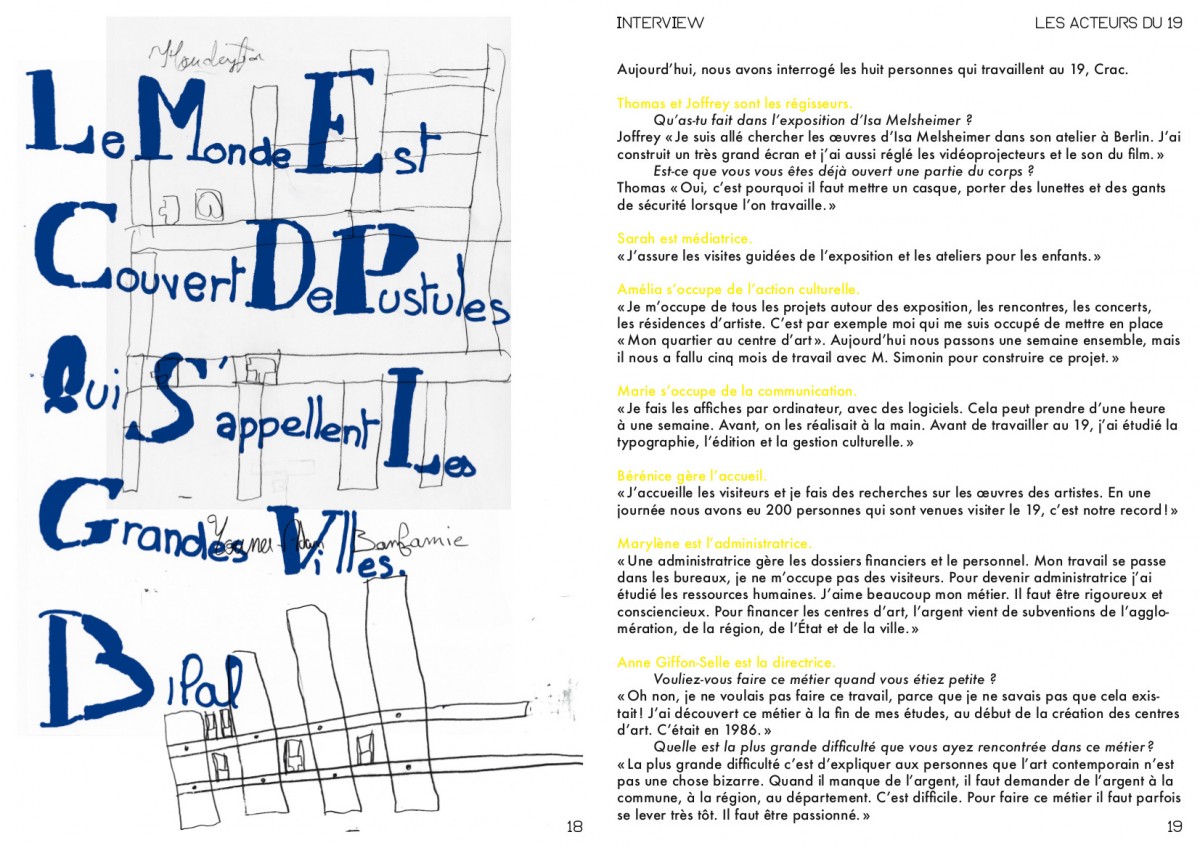 Le Monde Est
Couvert De Pustules
Qui S'appellent Les
Grandes Villes.
Bilal
18
INTERVIEW
LES ACTEURS DU 19
Aujourd'hui, nous avons interrogé les huit personnes qui travaillent au 19, Crac.
Thomas et Joffrey sont les régisseurs.
Qu'as-tu fait dans l'exposition d'Isa Melsheimer ?
Joffrey « Je suis allé chercher les œuvres d'Isa Melsheimer dans son atelier à Berlin. J'ai
construit un très grand écran et j'ai aussi réglé les vidéoprojecteurs et le son du film. »
Est-ce que vous vous êtes déjà ouvert une partie du corps ?
Thomas « Oui, c'est pourquoi il faut mettre un casque, porter des lunettes et des gants
de sécurité lorsque l'on travaille. »
Sarah est médiatrice.
« J'assure les visites guidées de l'exposition et les ateliers pour les enfants. »
Amélia s'occupe de l'action culturelle.
« Je m'occupe de tous les projets autour des exposition, les rencontres, les concerts,
les résidences d'artiste. C'est par exemple moi qui me suis occupé de mettre en place
« Mon quartier au centre d'art ». Aujourd'hui nous passons une semaine ensemble, mais
il nous a fallu cinq mois de travail avec M. Simonin pour construire ce projet. »
Marie s'occupe de la communication.
« Je fais les affiches par ordinateur, avec des logiciels. Cela peut prendre d'une heure
à une semaine. Avant, on les réalisait à la main. Avant de travailler au 19, j'ai étudié la
typographie, l'édition et la gestion culturelle. »
Bérénice gère l'accueil.
« J'accueille les visiteurs et je fais des recherches sur les œuvres des artistes. En une
journée nous avons eu 200 personnes qui sont venues visiter le 19, c'est notre record ! »
Marylène est l'administratrice.
« Une administratrice gère les dossiers financiers et le personnel. Mon travail se passe
dans les bureaux, je ne m'occupe pas des visiteurs. Pour devenir administratrice j'ai
étudié les ressources humaines. J'aime beaucoup mon métier. Il faut être rigoureux et
consciencieux. Pour financer les centres d'art, l'argent vient de subventions de l'agglo-
mération, de la région, de l'État et de la ville. »
Anne Giffon-Selle est la directrice.
Vouliez-vous faire ce métier quand vous étiez petite ?
« Oh non, je ne voulais pas faire ce travail, parce que je ne savais pas que cela exis-
tait ! J'ai découvert ce métier à la fin de mes études, au début de la création des centres
d'art. C'était en 1986. »
Quelle est la plus grande difficulté que vous ayez rencontrée dans ce métier ?
« La plus grande difficulté c'est d'expliquer aux personnes que l'art contemporain n'est
pas une chose bizarre. Quand il manque de l'argent, il faut demander de l'argent à la
commune, à la région, au département. C'est difficile. Pour faire ce métier il faut parfois
se lever très tôt. Il faut être passionné. »
19